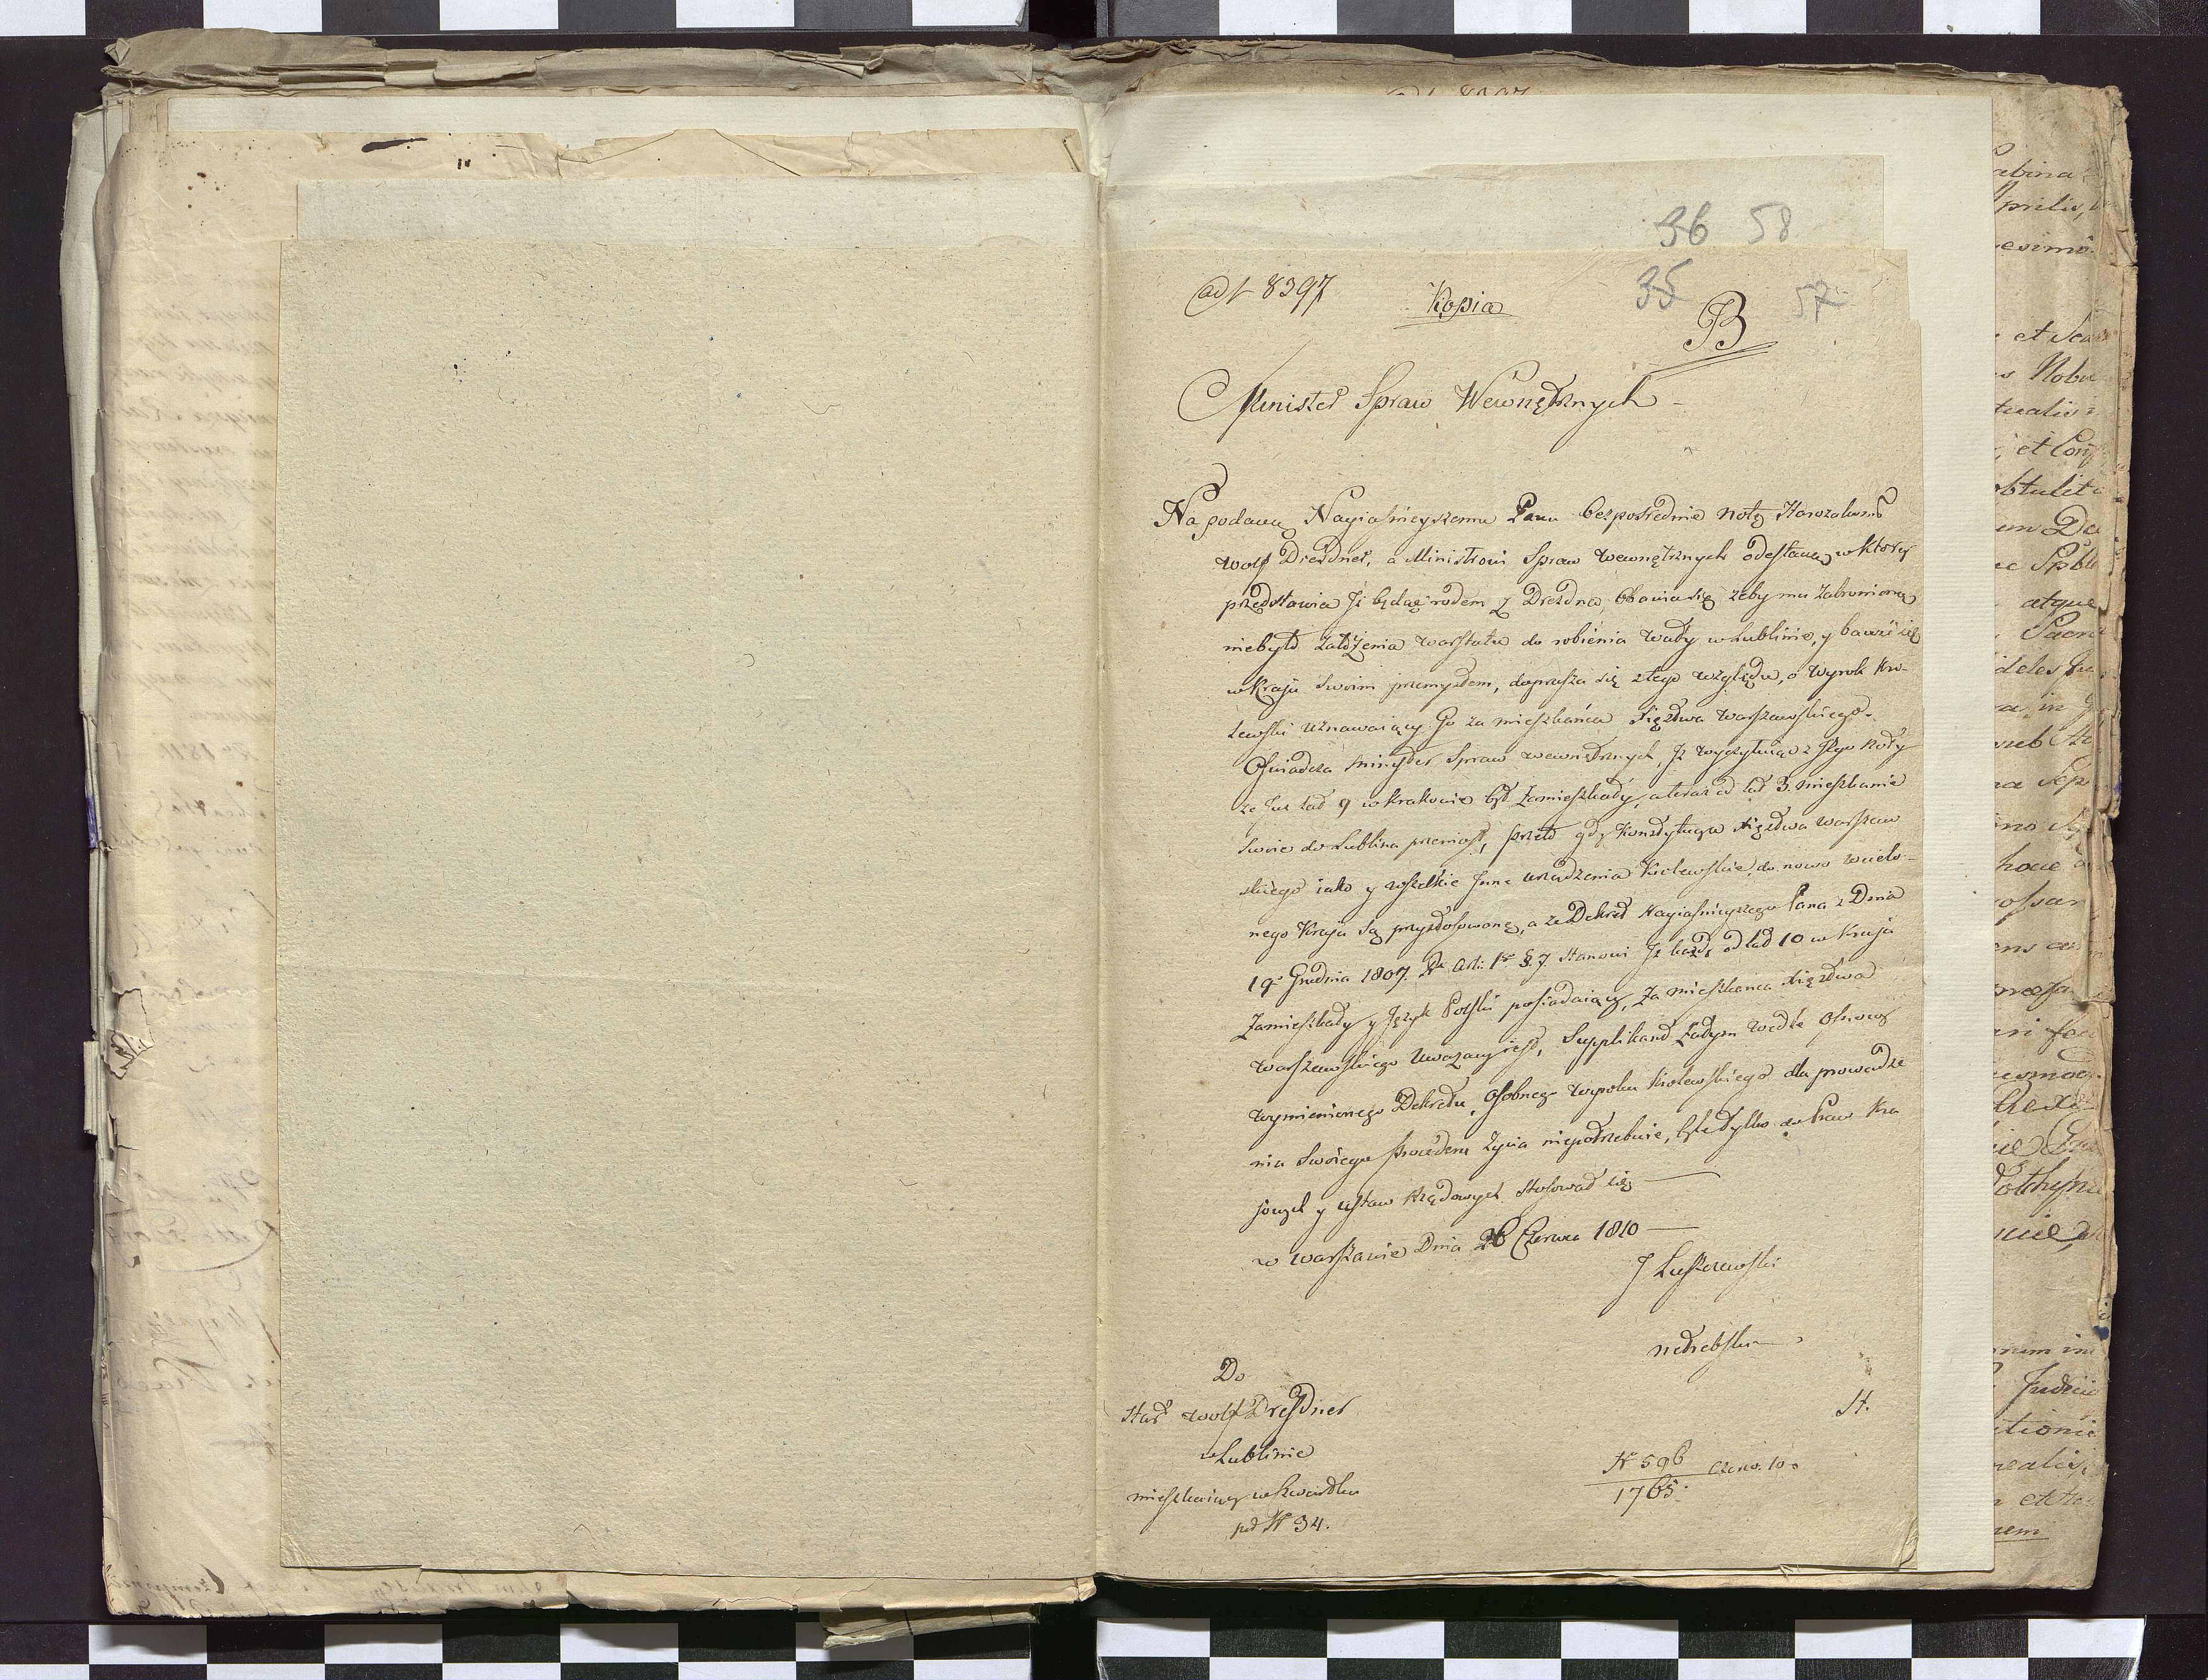 36 58
ad N 8397
Kopia
35 57
B
Minister Spraw Wewnętrznych
Na podaną Nayiaśnieyszemu Panu bezpośrednie notę Starozakonny
Wolf Dresdner, a Ministrowi Spraw wewnętrznych odesłaną w ktorey
przedstawia Iż będąc rodem z Drezdna, obawia się żeby mu zabronioną
niebyło założenia warsztatu do robienia waty w Lublinie, y bawić się
w kraju swoim przemysłem, doprasza się z tego względu, o wyrok Kro-
lewski uznawaiący Go za mieszkańca Xięstwa Warszawskiego.
Oświadcza Minister Spraw wewnętrznych, Iż wyczytuiąc z Jego Noty
że Już lat 9 w Krakowie był zamieszkały, a teraz od lat 3. mieszkanie
swoie do Lublina przeniosł, przeto gdy Konstytucya Xięstwa Warszaw
skiego iako y wszelkie Inne urządzenia Krolewskie, do nowo wcielo-
nego Kraju są przystosowane, a że Dekret Nayiaśnieyszego Pana z Dnia
19. Grudnia 1807. Ru Arti: 1r §. 7. stanowi Iż każdy od lat 10 w Kraju
zamieszkały y Język Polski posiadaiący, za mieszkanca Xięstwa
Warszawskiego uważany iest, Supplikant zatym wedle osnowy
wymienionego Dekretu, osobnego wyroku Krolewskiego dla prowadze
nia swoiego procederu życia niepotrzebuie, byle tylko do Praw Kra
jowych y ustaw Rządowych stosował się
w Warszawie Dnia 26 Czerwca 1810
J Łuszczewski
Do
Star Wolf Dresdner
w Lublinie
mieszkaiący
pod N 34.
N 596
1765.